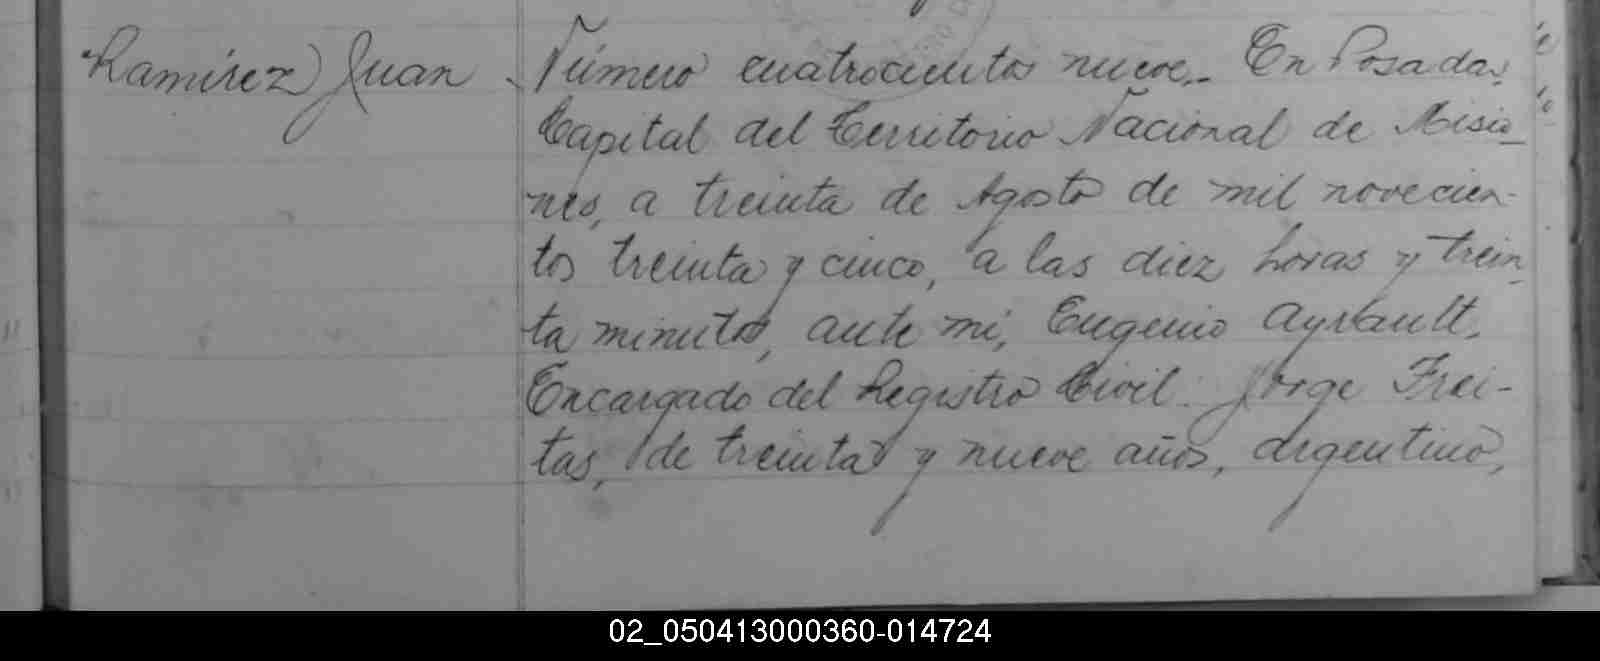 Ramírez Juan
Número cuatrocientos nueve.- En Posadas,
Capital del Territorio Nacional de Misio_
nes, a treinta de Agosto de mil novecien-
tos treinta y cinco, a las diez horas y trein_
ta minutos, ante mi, Eugenio Ayrault,
Encargado del Registro Civil: Jorge Frei-
tas, de treinta y nueve años, argentino,
02_050413000360-014724